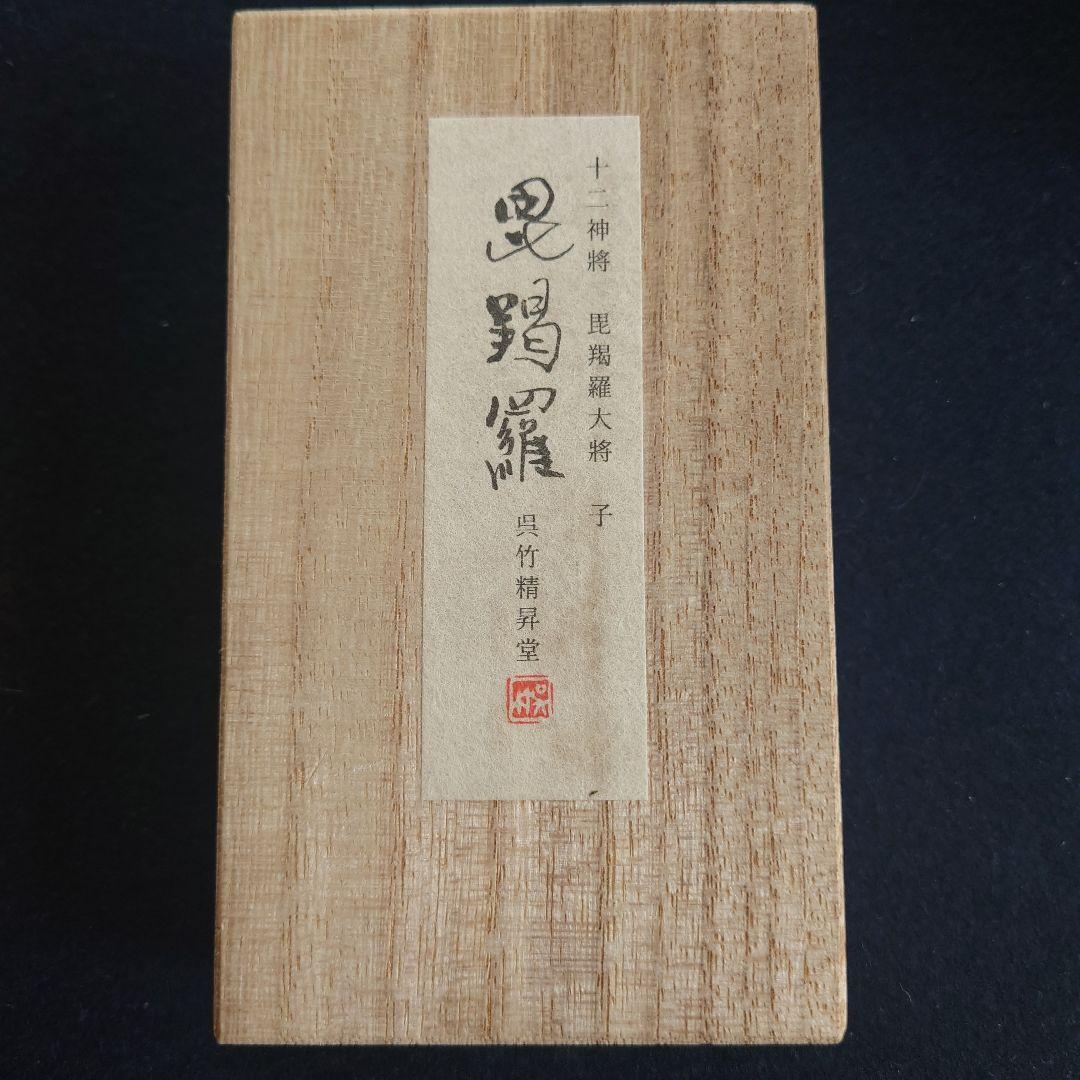 十二神將　毘羯羅大將　子
毘羯羅
呉竹精昇堂